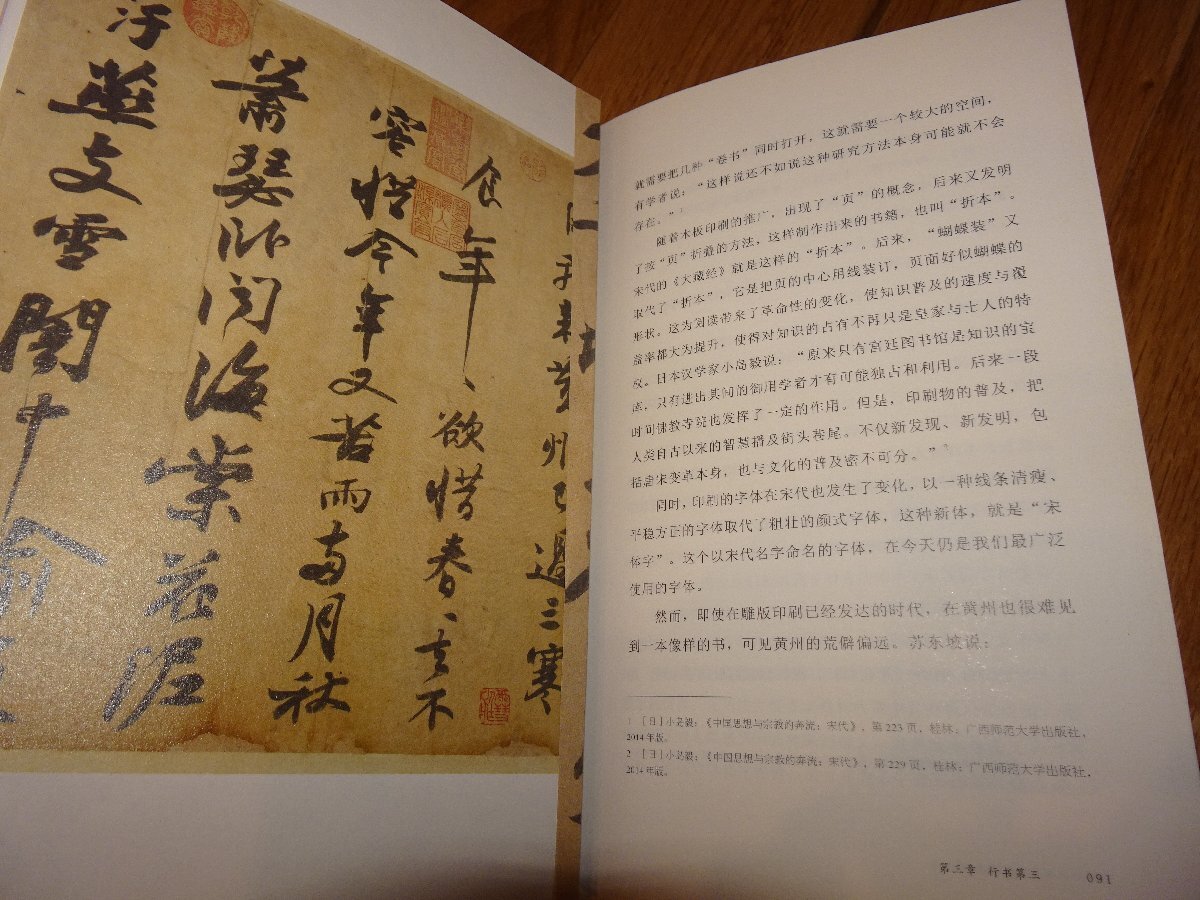 来黄州已過三寒
食年〻欲惜春〻去不
容惜今年又苦雨兩月秋
蕭瑟卧聞海棠花泥
汙燕支雪闇中偷
就需要把几种“卷书”同时打开，这就需要一个较大的空间，
有学者说：“这样说还不如说这种研究方法本身可能就不会
存在。”1
随着木板印刷的推广，出现了“页”的概念，后来又发明
了按“页”折叠的方法，这样制作出来的书籍，也叫“折本”。
宋代的《大藏经》就是这样的“折本”。后来，“蝴蝶装”又
取代了“折本”，它是把页的中心用线装订，页面好似蝴蝶的
形状。这为阅读带来了革命性的变化，使知识普及的速度与覆
盖率都大为提升，使得对知识的占有不再只是皇家与士人的特
权。日本汉学家小岛毅说：“原来只有宫廷图书馆是知识的宝
库，只有进出其间的御用学者才有可能独占和利用。后来一段
时间佛教寺院也发挥了一定的作用。但是，印刷物的普及，把
人类自古以来的智慧播及街头巷尾。不仅新发现、新发明，包
括唐宋变革本身，也与文化的普及密不可分。”2
同时，印刷的字体在宋代也发生了变化，以一种线条清瘦、
平稳方正的字体取代了粗壮的颜式字体，这种新体，就是“宋
体字”。这个以宋代名字命名的字体，在今天仍是我们最广泛
使用的字体。
然而，即使在雕版印刷已经发达的时代，在黄州也很难见
到一本像样的书，可见黄州的荒僻偏远。苏东坡说：
1 ［日］小岛毅：《中国思想与宗教的奔流：宋代》，第 223 页，桂林：广西师范大学出版社，
2014 年版。
2 ［日］小岛毅：《中国思想与宗教的奔流：宋代》，第 229 页，桂林：广西师范大学出版社，
2014 年版。
第三章 行书第三 091